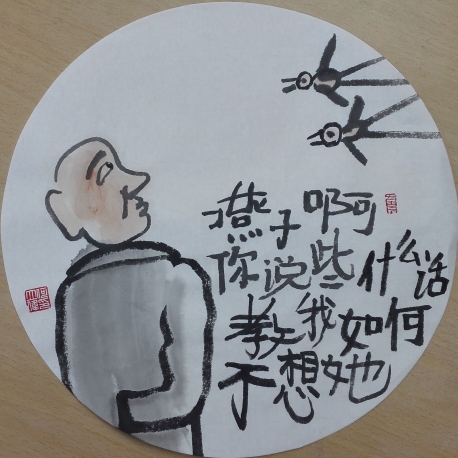 燕子啊
你说些什么话
教我如何
不想她